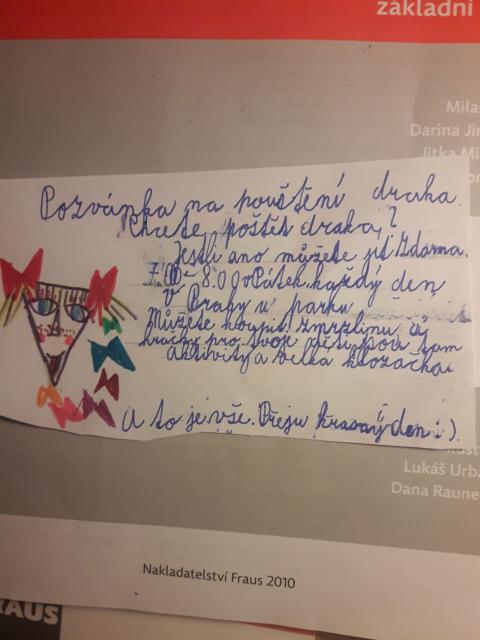 základní
Mila
Darina Jir
Jitka Mi
Pozvánka na pouštění draka.
Chcete poštět draka?
Jestli ano můžete jít zdarma.
7.00 - 8.00 v Pátek každý den
v Prahy u parku
Můžete koupit zmrzlinu a
hračky pro svoje děti jsou tam
aktivity a velká klozačka.
A to je vše. Přeju krasný den :).
Lukáš Urba
Dana Raune
Nakladatelství Fraus 2010
RAUS